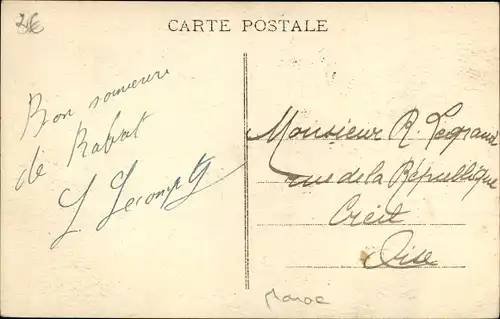 CARTE POSTALE
Bon souvenir
de Rabat
L. Lecompte
Monsieur R. Legrand
rue de la République
Creil
Oise
Maroc